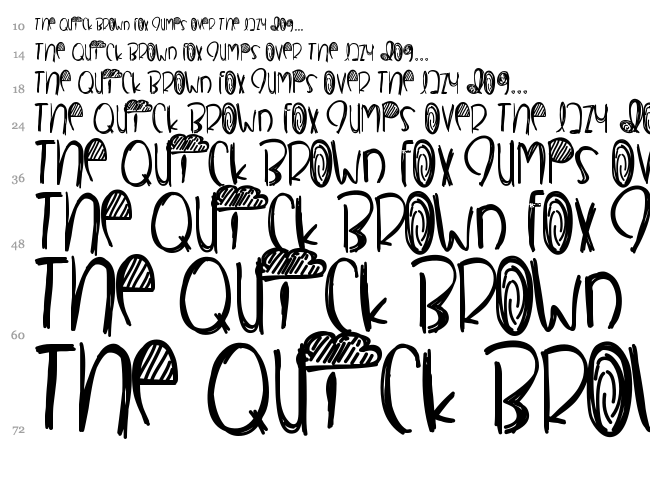 10 THE QUiCK BROWn fOX JUMPS OVER THE lAZY dOg...
14 THE QUiCK BROWn fOX JUMPS OVER THE lAZY dOg...
18 THE QUiCK BROWn fOX JUMPS OVER THE lAZY dOg...
24 THE QUiCK BROWn fOX JUMPS OVER THE lAZY dO
36 THE QUiCK BROWn fOX JUMPS OV
48 THE QUiCK BROWn fOX J
60 THE QUiCK BROWn
72 THE QUiCK BROW